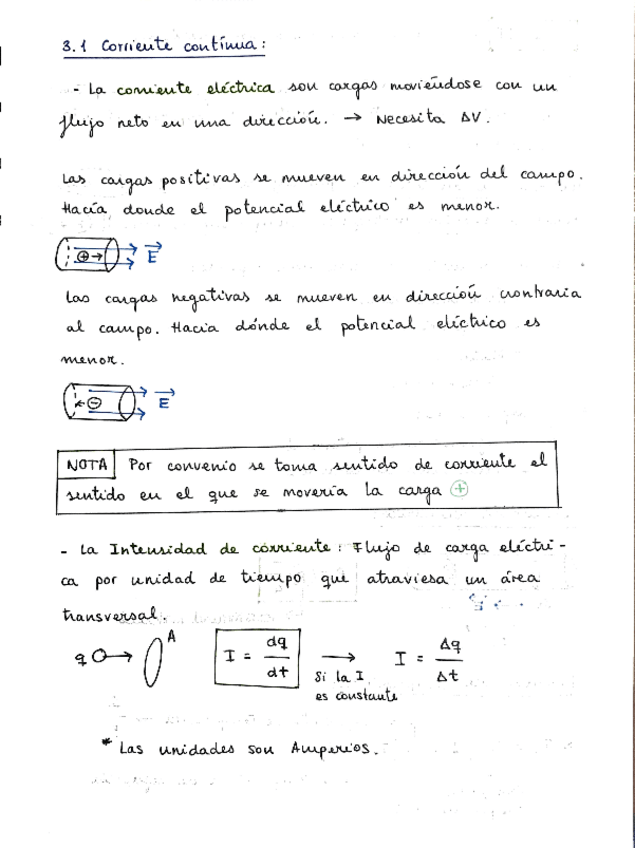 3.1 Corriente contínua:
- La corriente eléctrica son cargas moviéndose con un
flujo neto en una dirección. → Necesita ΔV.
Las cargas positivas se mueven en dirección del campo.
Hacía donde el potencial eléctrico es menor.
⊕→ E⃗
Las cargas negativas se mueven en dirección contraria
al campo. Hacia dónde el potencial eléctrico es
menor.
←⊖ E⃗
NOTA Por convenio se toma sentido de corriente el
sentido en el que se movería la carga ⊕
- La Intensidad de corriente: Flujo de carga eléctri-
ca por unidad de tiempo que atraviesa un área
transversal.
q → A I = dq/dt → I = Δq/Δt
Si la I
es constante
* Las unidades son Amperios.